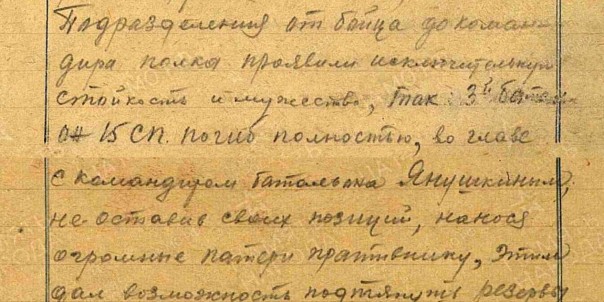 Подразделения от бойца до коман-
дира полка проявили исключительную
стойкость и мужество, так 3й бата-
он 15 СП. погиб полностью, во главе
с командиром баталька Янушкиным,
не оставив своих позиций, нанося
огромные патери пративнику, этим
дал возможность подтянуть резервы